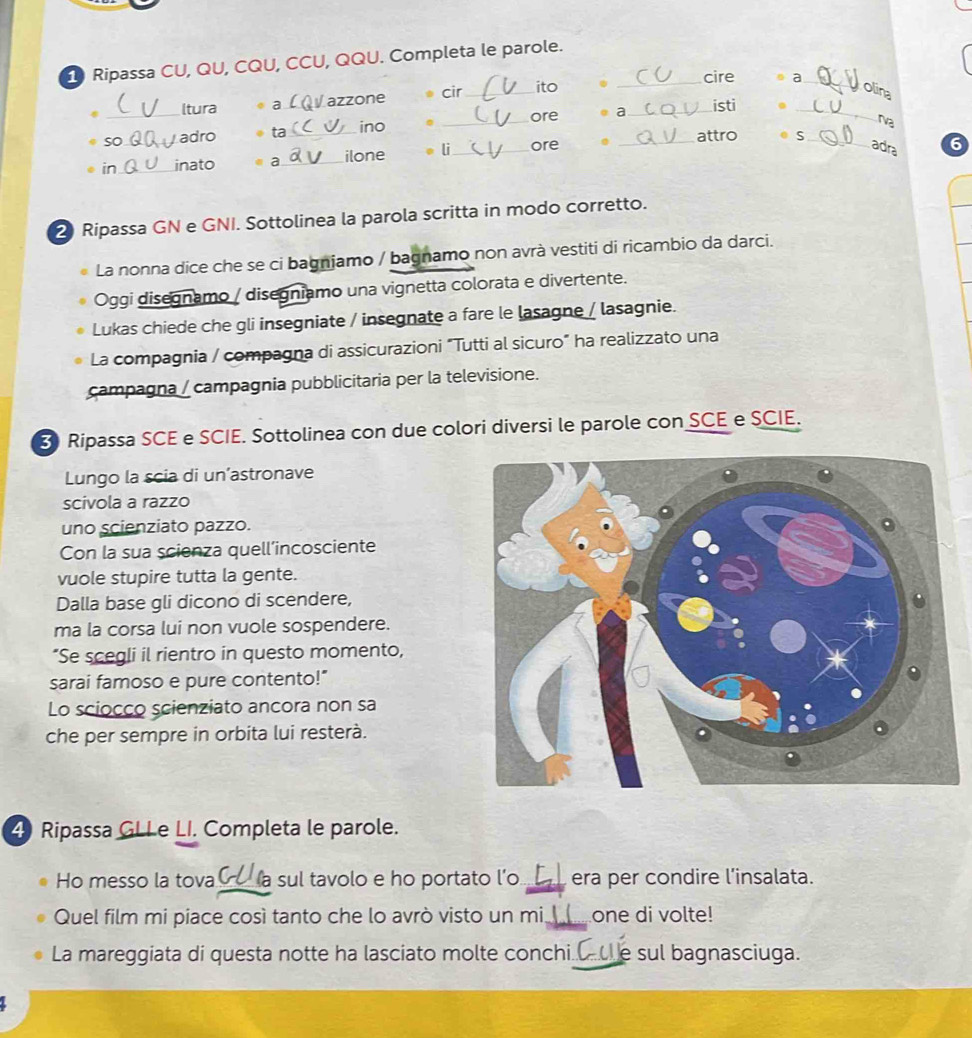 1 Ripassa CU, QU, CQU, CCU, QQU. Completa le parole.
• CU ltura • a CQU azzone • cir CU ito • CU cire • a QU olina
• so QQU adro • ta CCU ino • CU ore • a CQU isti • CU rva
• in QU inato • a QU ilone • li QU ore • QU attro • s QU adra
6
2 Ripassa GN e GNI. Sottolinea la parola scritta in modo corretto.
• La nonna dice che se ci bagniamo / bagnamo non avrà vestiti di ricambio da darci.
• Oggi disegnamo / disegniamo una vignetta colorata e divertente.
• Lukas chiede che gli insegniate / insegnate a fare le lasagne / lasagnie.
• La compagnia / compagna di assicurazioni "Tutti al sicuro" ha realizzato una
campagna / campagnia pubblicitaria per la televisione.
3 Ripassa SCE e SCIE. Sottolinea con due colori diversi le parole con SCE e SCIE.
Lungo la scia di un'astronave
scivola a razzo
uno scienziato pazzo.
Con la sua scienza quell'incosciente
vuole stupire tutta la gente.
Dalla base gli dicono di scendere,
ma la corsa lui non vuole sospendere.
"Se scegli il rientro in questo momento,
sarai famoso e pure contento!"
Lo sciocco scienziato ancora non sa
che per sempre in orbita lui resterà.
4 Ripassa GLI e LI. Completa le parole.
• Ho messo la tova GLI a sul tavolo e ho portato l'o LI era per condire l'insalata.
• Quel film mi piace così tanto che lo avrò visto un mi LI one di volte!
• La mareggiata di questa notte ha lasciato molte conchi GLI e sul bagnasciuga.